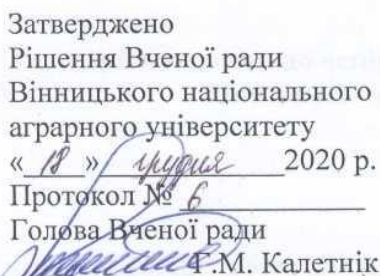 Затверджено
Рішення Вченої ради
Вінницького національного
аграрного університету
« 18 » грудня 2020 р.
Протокол № 6
Голова Вченої ради
Г.М. Калетнік